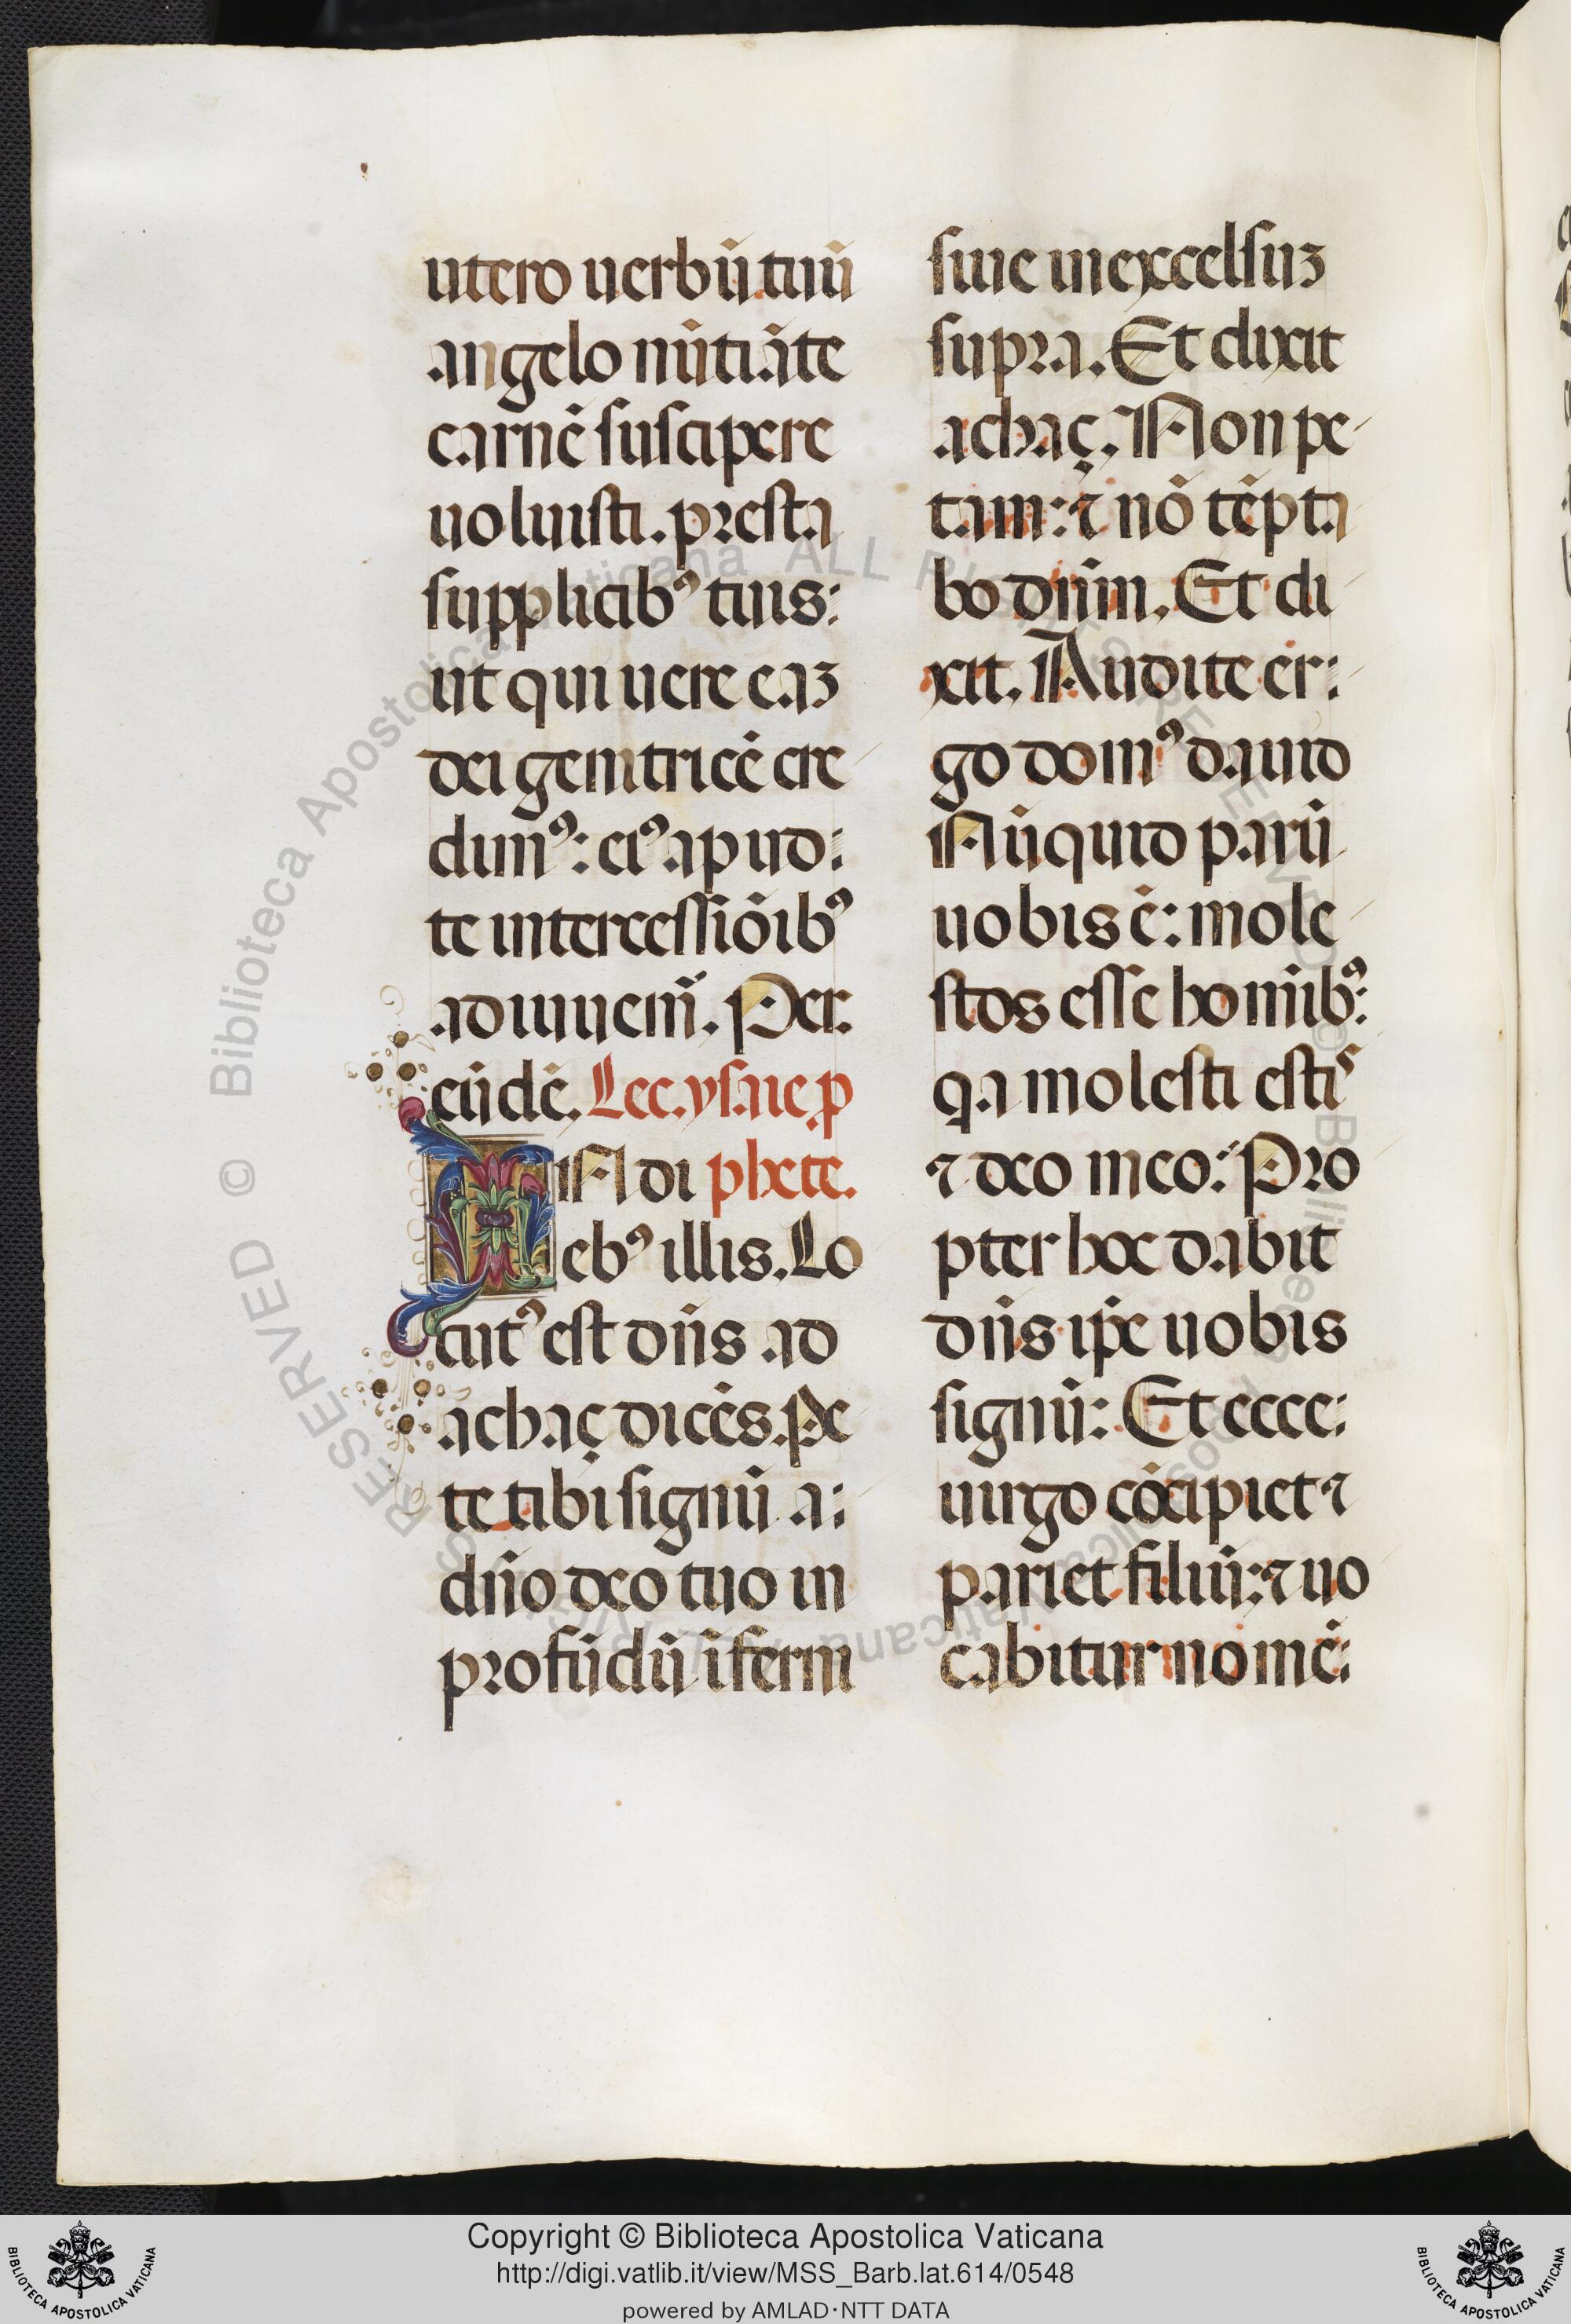 utero uerbū tuū
angelo nūtiāte
carnē suscipere
uoluisti. presta
supplicibꝰ tuis:
ut qui uere eaꝫ
dei genitricē cre
dimꝰ: eiꝰ apud:
te intercessiōibꝰ
adiuuem̃. Per.
eūdē. Lec. ysaie ꝓ
IN di phete.
ebꝰ illis. Lo
cutꝰ est dn̄s ad
achaç dicēs. Pe
te tibi signū a:
dn̄o deo tuo in
profūdū īferni
siue in excelsuꝫ
supra. Et dixit
achaç. Non pe
tam: ⁊ nō tēpta
bo dn̄m. Et di
xit. Audite er:
go domꝰ dauid
Nūquid parū
uobis ē: mole
stos esse homībꝰ:
qa molesti estis
⁊ deo meo: Pro
pter hoc dabit
dn̄s ip̄e uobis
signū: Et ecce:
uirgo cōcipiet ⁊
pariet filiū: ⁊ uo
cabitur nomē:
Copyright © Biblioteca Apostolica Vaticana
http://digi.vatlib.it/view/MSS_Barb.lat.614/0548
powered by AMLAD·NTT DATA
BIBLIOTECA APOSTOLICA VATICANA
BIBLIOTECA APOSTOLICA VATICANA